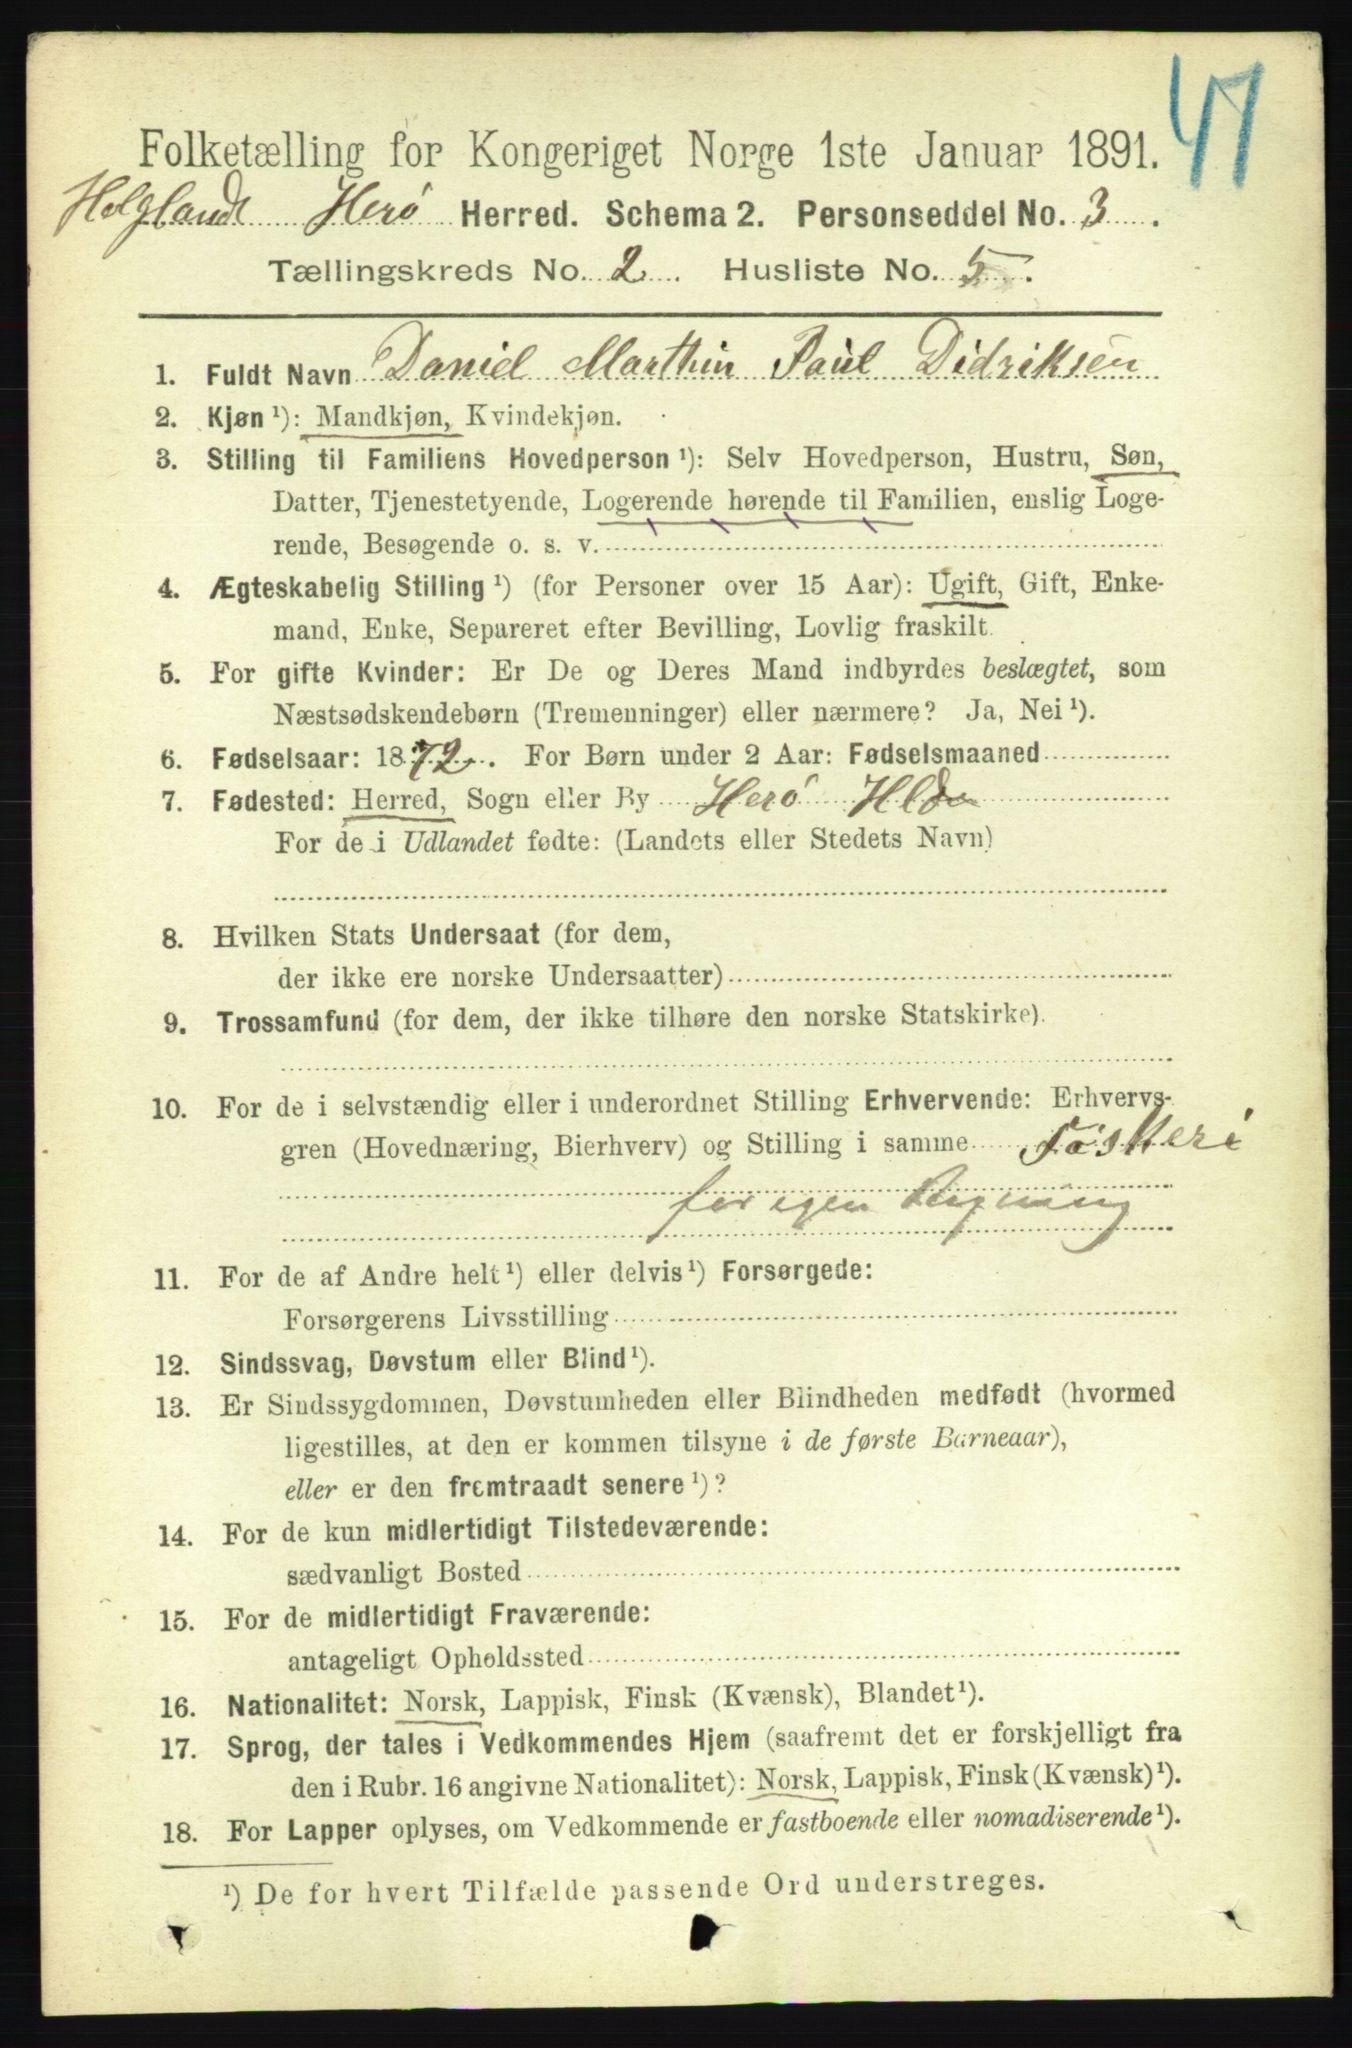 47
Folketælling for Kongeriget Norge 1ste Januar 1891.
Helgland Herø Herred. Schema 2. Personseddel No. 3.
Tællingskreds No. 2. Husliste No. 5.
1. Fuldt Navn Daniel Marthin Paul Didriksen
2. Kjøn¹): Mandkjøn, Kvindekjøn.
3. Stilling til Familiens Hovedperson¹): Selv Hovedperson, Hustru, Søn,
Datter, Tjenestetyende, Logerende hørende til Familien, enslig Loge-
rende, Besøgende o. s. v.
4. Ægteskabelig Stilling¹) (for Personer over 15 Aar): Ugift, Gift, Enke-
mand, Enke, Separeret efter Bevilling, Lovlig fraskilt.
5. For gifte Kvinder: Er De og Deres Mand indbyrdes beslægtet, som
Næstsødskendebørn (Tremenninger) eller nærmere? Ja, Nei¹).
6. Fødselsaar: 1872. For Børn under 2 Aar: Fødselsmaaned
7. Fødested: Herred, Sogn eller By Herø Hld
For de i Udlandet fødte: (Landets eller Stedets Navn)
8. Hvilken Stats Undersaat (for dem,
der ikke ere norske Undersaatter)
9. Trossamfund (for dem, der ikke tilhøre den norske Statskirke).
10. For de i selvstændig eller i underordnet Stilling Erhvervende: Erhvervs-
gren (Hovednæring, Bierhverv) og Stilling i samme Fiskeri
for egen Regning
11. For de af Andre helt¹) eller delvis¹) Forsørgede:
Forsørgerens Livsstilling
12. Sindssvag, Døvstum eller Blind¹).
13. Er Sindssygdommen, Døvstumheden eller Blindheden medfødt (hvormed
ligestilles, at den er kommen tilsyne i de første Barneaar),
eller er den fremtraadt senere¹)?
14. For de kun midlertidigt Tilstedeværende:
sædvanligt Bosted
15. For de midlertidigt Fraværende:
antageligt Opholdssted
16. Nationalitet: Norsk, Lappisk, Finsk (Kvænsk), Blandet¹).
17. Sprog, der tales i Vedkommendes Hjem (saafremt det er forskjelligt fra
den i Rubr. 16 angivne Nationalitet): Norsk, Lappisk, Finsk (Kvænsk)¹).
18. For Lapper oplyses, om Vedkommende er fastboende eller nomadiserende¹).
¹) De for hvert Tilfælde passende Ord understreges.